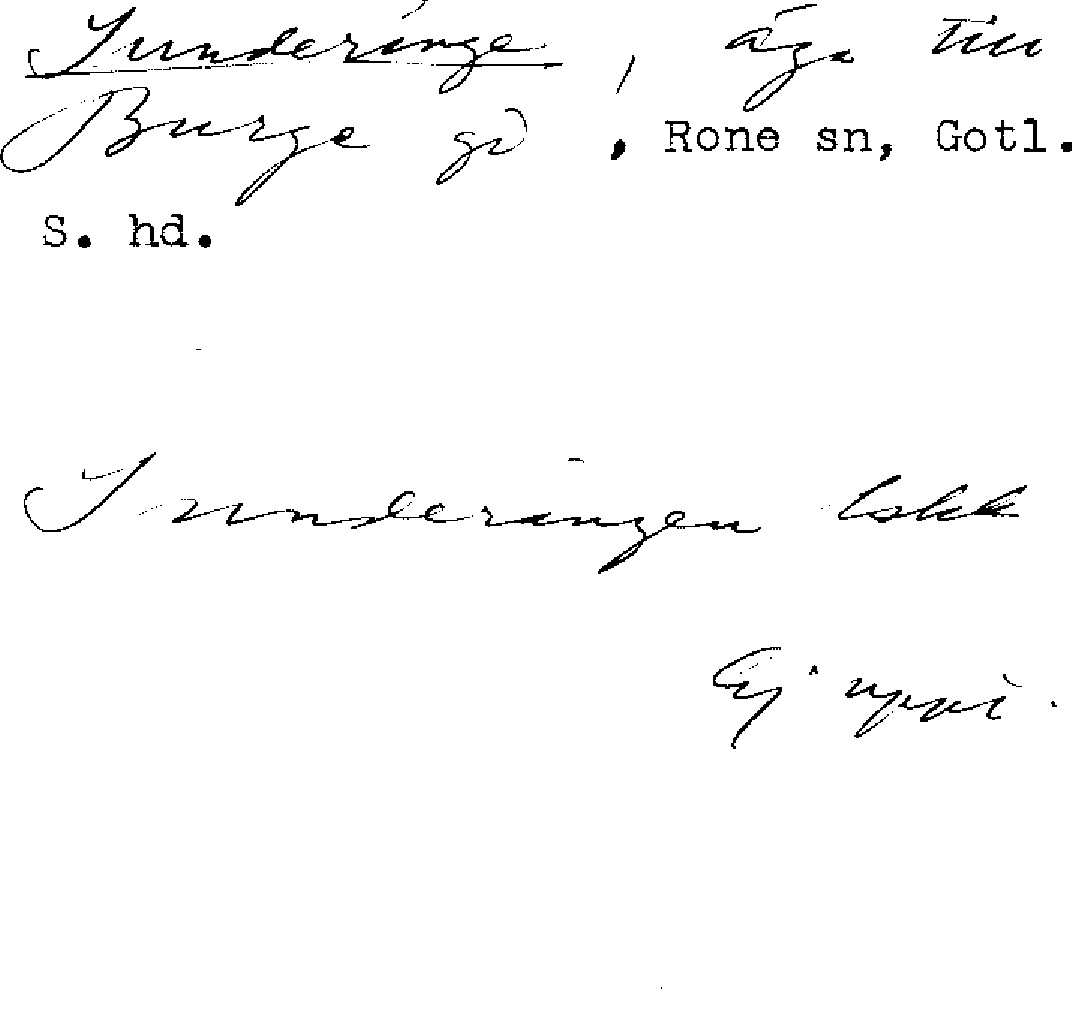 Sunderinge, äga till
Burge gd, Rone sn, Gotl.
S. hd.
Sunderingen Lskk
Ej uppt.